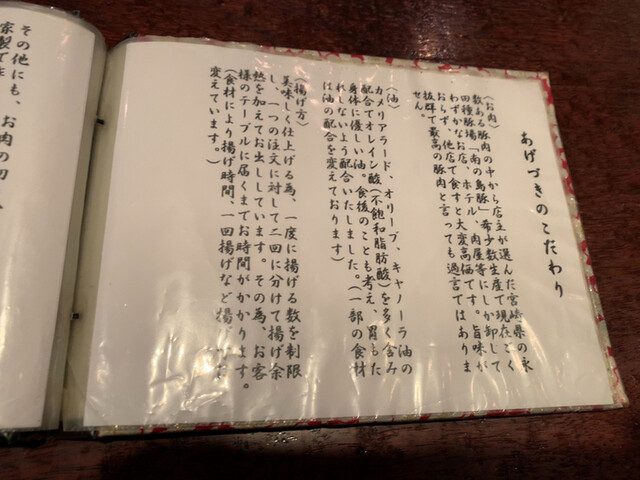 あげづきのこだわり
(お肉)
数ある豚肉の中から店主が選んだ宮崎県の永
田種豚場「南の島豚」希少数生産で現在ごく
わずかなお店、ホテル、肉屋等にしか卸して
おらず、他店で食すと大変高価です。旨味が
抜群で最高の豚肉と言っても過言ではありま
せん。
(油)
カメリアラード、オリーブ、キャノーラ油の
配合でオレイン酸(不飽和脂肪酸)を多く含み
身体に優しい油。食後のことも考え、胃もた
れしないよう配合いたしました。(一部の食材
は油の配合を変えております)
(揚げ方)
美味しく仕上げる為、一度に揚げる数を制限
し、一つの注文に対して二回に分けて揚げ余
熱を加えてお出ししています。その為、お客
様のテーブルに届くまでお時間がかかります。
(食材により揚げ時間、一回揚げなど揚げ方
変えています。)
その他にも、お肉の切
家製で